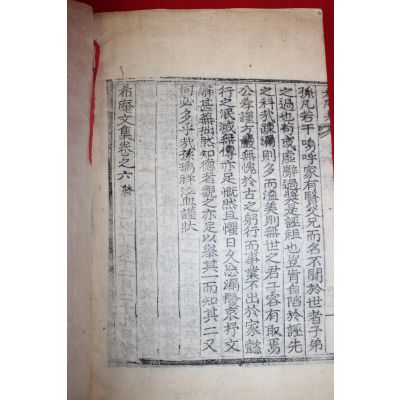 孫凡若干嗚呼家有賢父兄而名不聞於世者子弟
之過也有或虛辭過獎是誣祖也豈肯自陷於誣先
之科哉疎漏則多而溢美則無世之君子容有取焉
公孝謹方嚴無愧於古之躬行而事業不出於家懿
行之泯滅無傳亦足慨然且懼日久忘漏攬哀抒文
辭甚蕪拙然知德者觀之亦足以舉其一而知其二又
何必多乎哉孫瑀祥泣血謹狀
希庵文集卷之六終